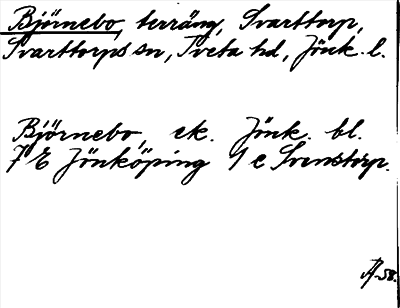 Björnebo, terräng, Svarttorp,
Svarttorps sn, Tveta hd, Jönk. l.
Björnebo, ek. Jönk. bl.
7 E Jönköping 1 e Svenstorp.
58.